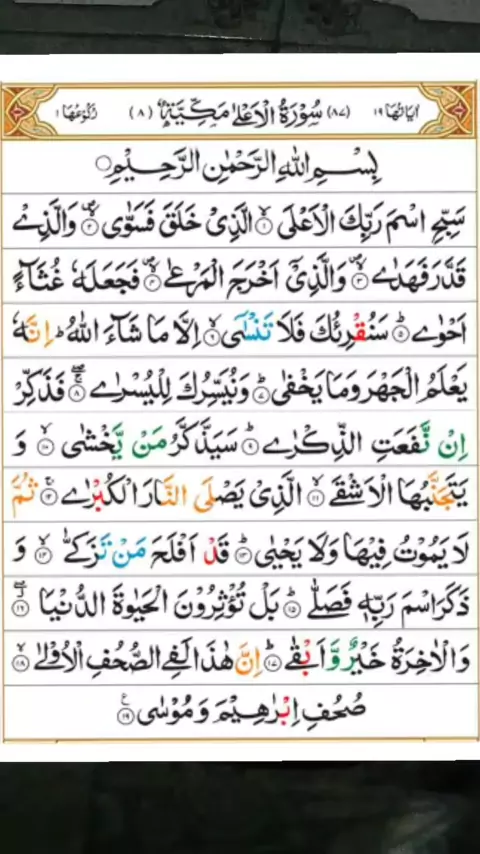 اٰیَاتُهَا ١٩ (٨٧) سُوْرَةُ الْاَعْلٰى مَكِّيَّةٌ (٨) رُكُوْعُهَا ١
بِسْمِ اللّٰهِ الرَّحْمٰنِ الرَّحِيْمِ
سَبِّحِ اسْمَ رَبِّكَ الْاَعْلَى ١ الَّذِىْ خَلَقَ فَسَوّٰى ٢ وَالَّذِىْ
قَدَّرَ فَهَدٰى ٣ وَالَّذِىْٓ اَخْرَجَ الْمَرْعٰى ٤ فَجَعَلَهٗ غُثَآءً
اَحْوٰى ٥ سَنُقْرِئُكَ فَلَا تَنْسٰٓى ٦ اِلَّا مَا شَآءَ اللّٰهُ ط اِنَّهٗ
يَعْلَمُ الْجَهْرَ وَمَا يَخْفٰى ٧ وَنُيَسِّرُكَ لِلْيُسْرٰى ٨ فَذَكِّرْ
اِنْ نَّفَعَتِ الذِّكْرٰى ٩ سَيَذَّكَّرُ مَنْ يَّخْشٰى ١٠ وَ
يَتَجَنَّبُهَا الْاَشْقَى ١١ الَّذِىْ يَصْلَى النَّارَ الْكُبْرٰى ١٢ ثُمَّ
لَا يَمُوْتُ فِيْهَا وَلَا يَحْيٰى ١٣ قَدْ اَفْلَحَ مَنْ تَزَكّٰى ١٤ وَ
ذَكَرَ اسْمَ رَبِّهٖ فَصَلّٰى ١٥ بَلْ تُؤْثِرُوْنَ الْحَيٰوةَ الدُّنْيَا ١٦
وَالْاٰخِرَةُ خَيْرٌ وَّاَبْقٰى ١٧ اِنَّ هٰذَا لَفِى الصُّحُفِ الْاُوْلٰى ١٨
صُحُفِ اِبْرٰهِيْمَ وَمُوْسٰى ١٩